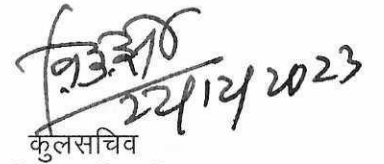 22/12/2023
कुलसचिव